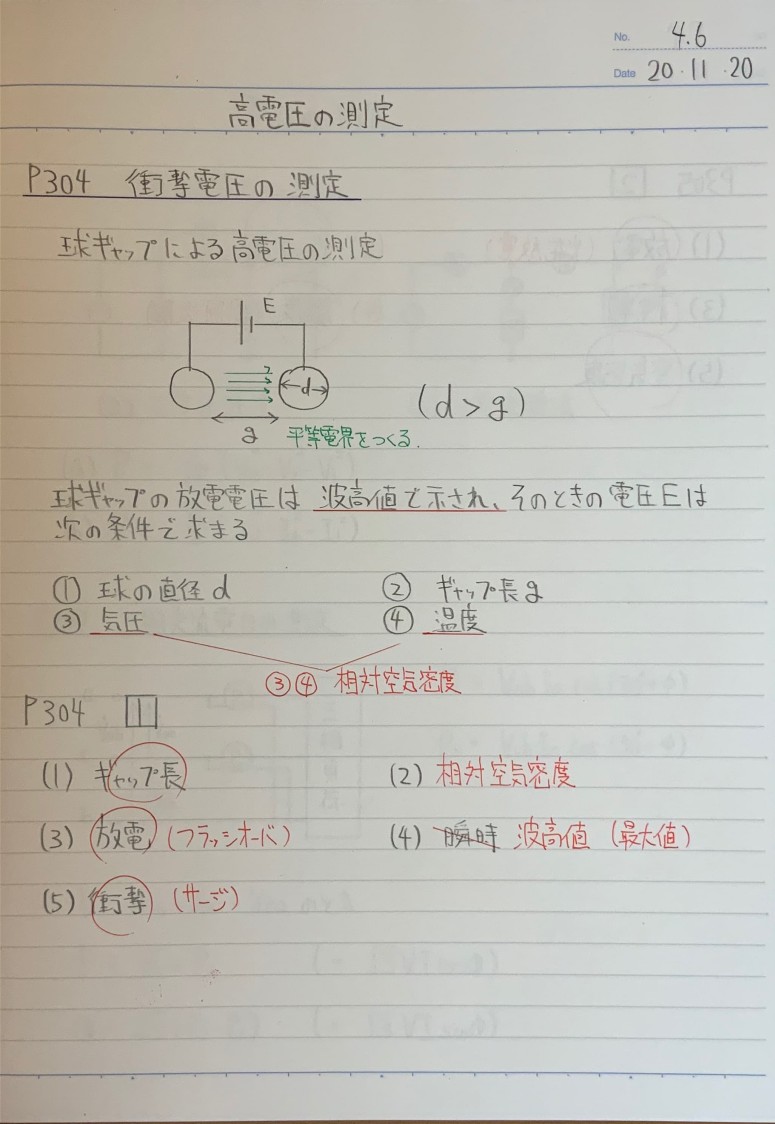 No. 4.6
Date 20・11・20
高電圧の測定
P304 衝撃電圧の測定
球ギャップによる高電圧の測定
E
d
(d>g)
g
平等電界をつくる.
球ギャップの放電電圧は 波高値で示され、そのときの電圧Eは
次の条件で求まる
① 球の直径d ② ギャップ長g
③ 気圧 ④ 温度
③④ 相対空気密度
P304 1
(1) ギャップ長 (2) 相対空気密度
(3) 放電 (フラッシオーバ) (4) 瞬時 波高値 (最大値)
(5) 衝撃 (サージ)